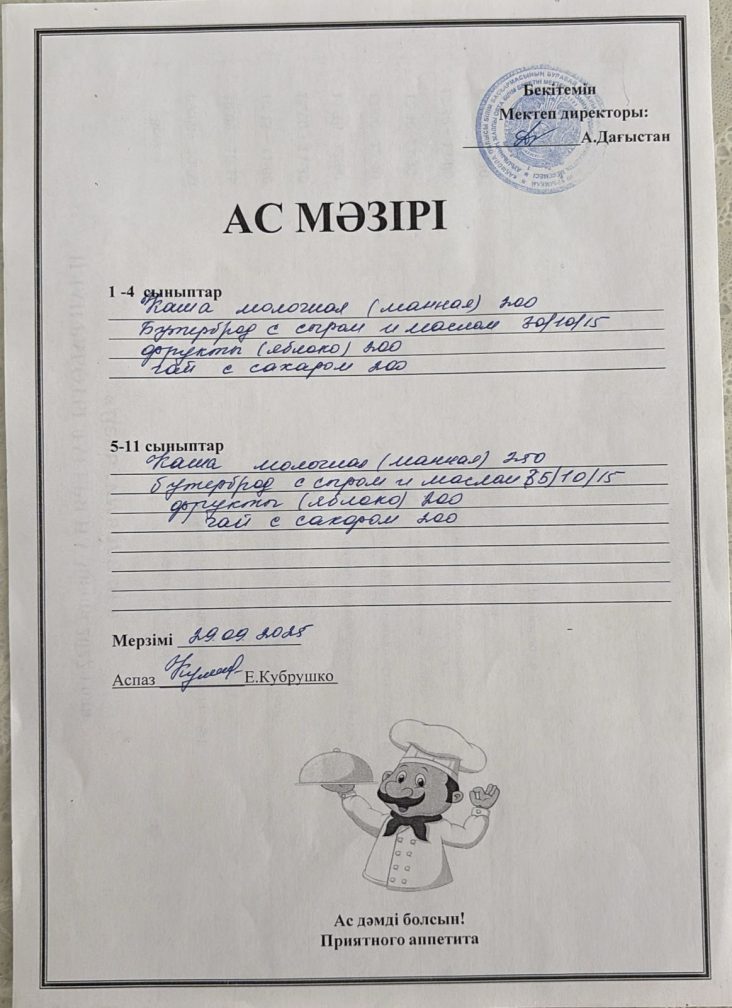 Бекітемін
Мектеп директоры:
А.Дағыстан
АС МӘЗІРІ
1 -4 сыныптар
Каша молочная (манная) 200
Бутерброд с сыром и маслом 30/10/15
фрукты (яблоко) 200
чай с сахаром 200
5-11 сыныптар
Каша молочная (манная) 250
бутерброд с сыром и маслом 35/10/15
фрукты (яблоко) 200
чай с сахаром 200
Мерзімі 29.09.2025
Аспаз Е.Кубрушко
Ас дәмді болсын!
Приятного аппетита